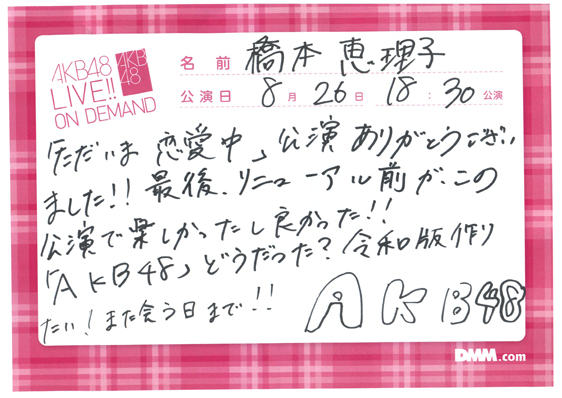 AKB48
LIVE!!
ON DEMAND
AKB
48
名前 橋本 恵理子
公演日 8月26日 18:30公演
「ただいま 恋愛中」公演 ありがとうござい
ました!! 最後、リニューアル前が、この
公演で楽しかったし良かった!!
「AKB48」どうだった?令和版作り
たい!また会う日まで!!
AKB48
DMM.com